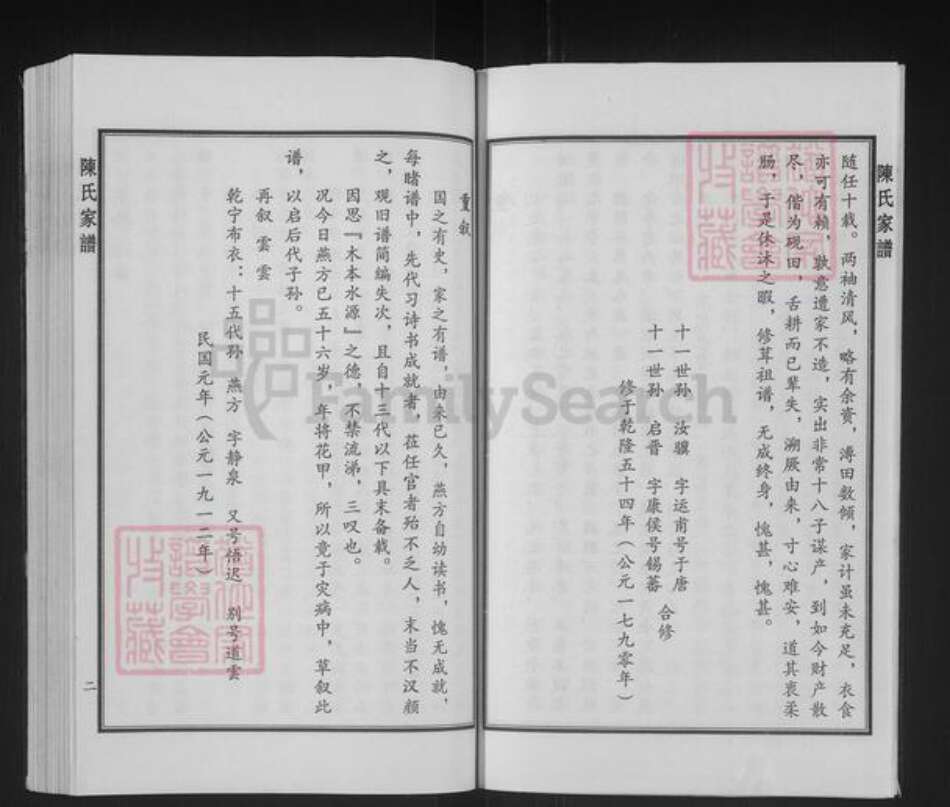 陳氏家譜
随任十载。两袖清风，略有余资，溥田数倾，家计虽未充足，衣食
亦可有赖，孰意遭家不造，实出非常十八子谋产，到如今财产散
尽，偕为砚田，舌耕而已辈失，溯厥由来，寸心难安，道其衷柔
肠，于是休沐之暇，修葺祖谱，无成终身，愧甚，愧甚。
十一世孙 汝骥 字运甫号于唐
十一世孙 启晋 字康侯号锡蕃 合修
修于乾隆五十四年（公元一七九零年）
重叙
国之有史，家之有谱，由来已久，燕方自幼读书，愧无成就，
每睹谱中，先代习诗书成就者，莅任官者殆不之人，未当不汉颜
之，观旧谱简编失次，且自十三代以下具未备载。
因思『木本水源』之德，不禁流涕，三叹也。
况今日燕方已五十六岁，年将花甲，所以竟于灾病中，草叙此
谱，以启后代子孙。
再叙 雲雲
乾宁布衣：十五代孙 燕方 字静泉 又号悟迟 别号道雲
民国元年（公元一九一二年）
陳氏家譜
二
FamilySearch